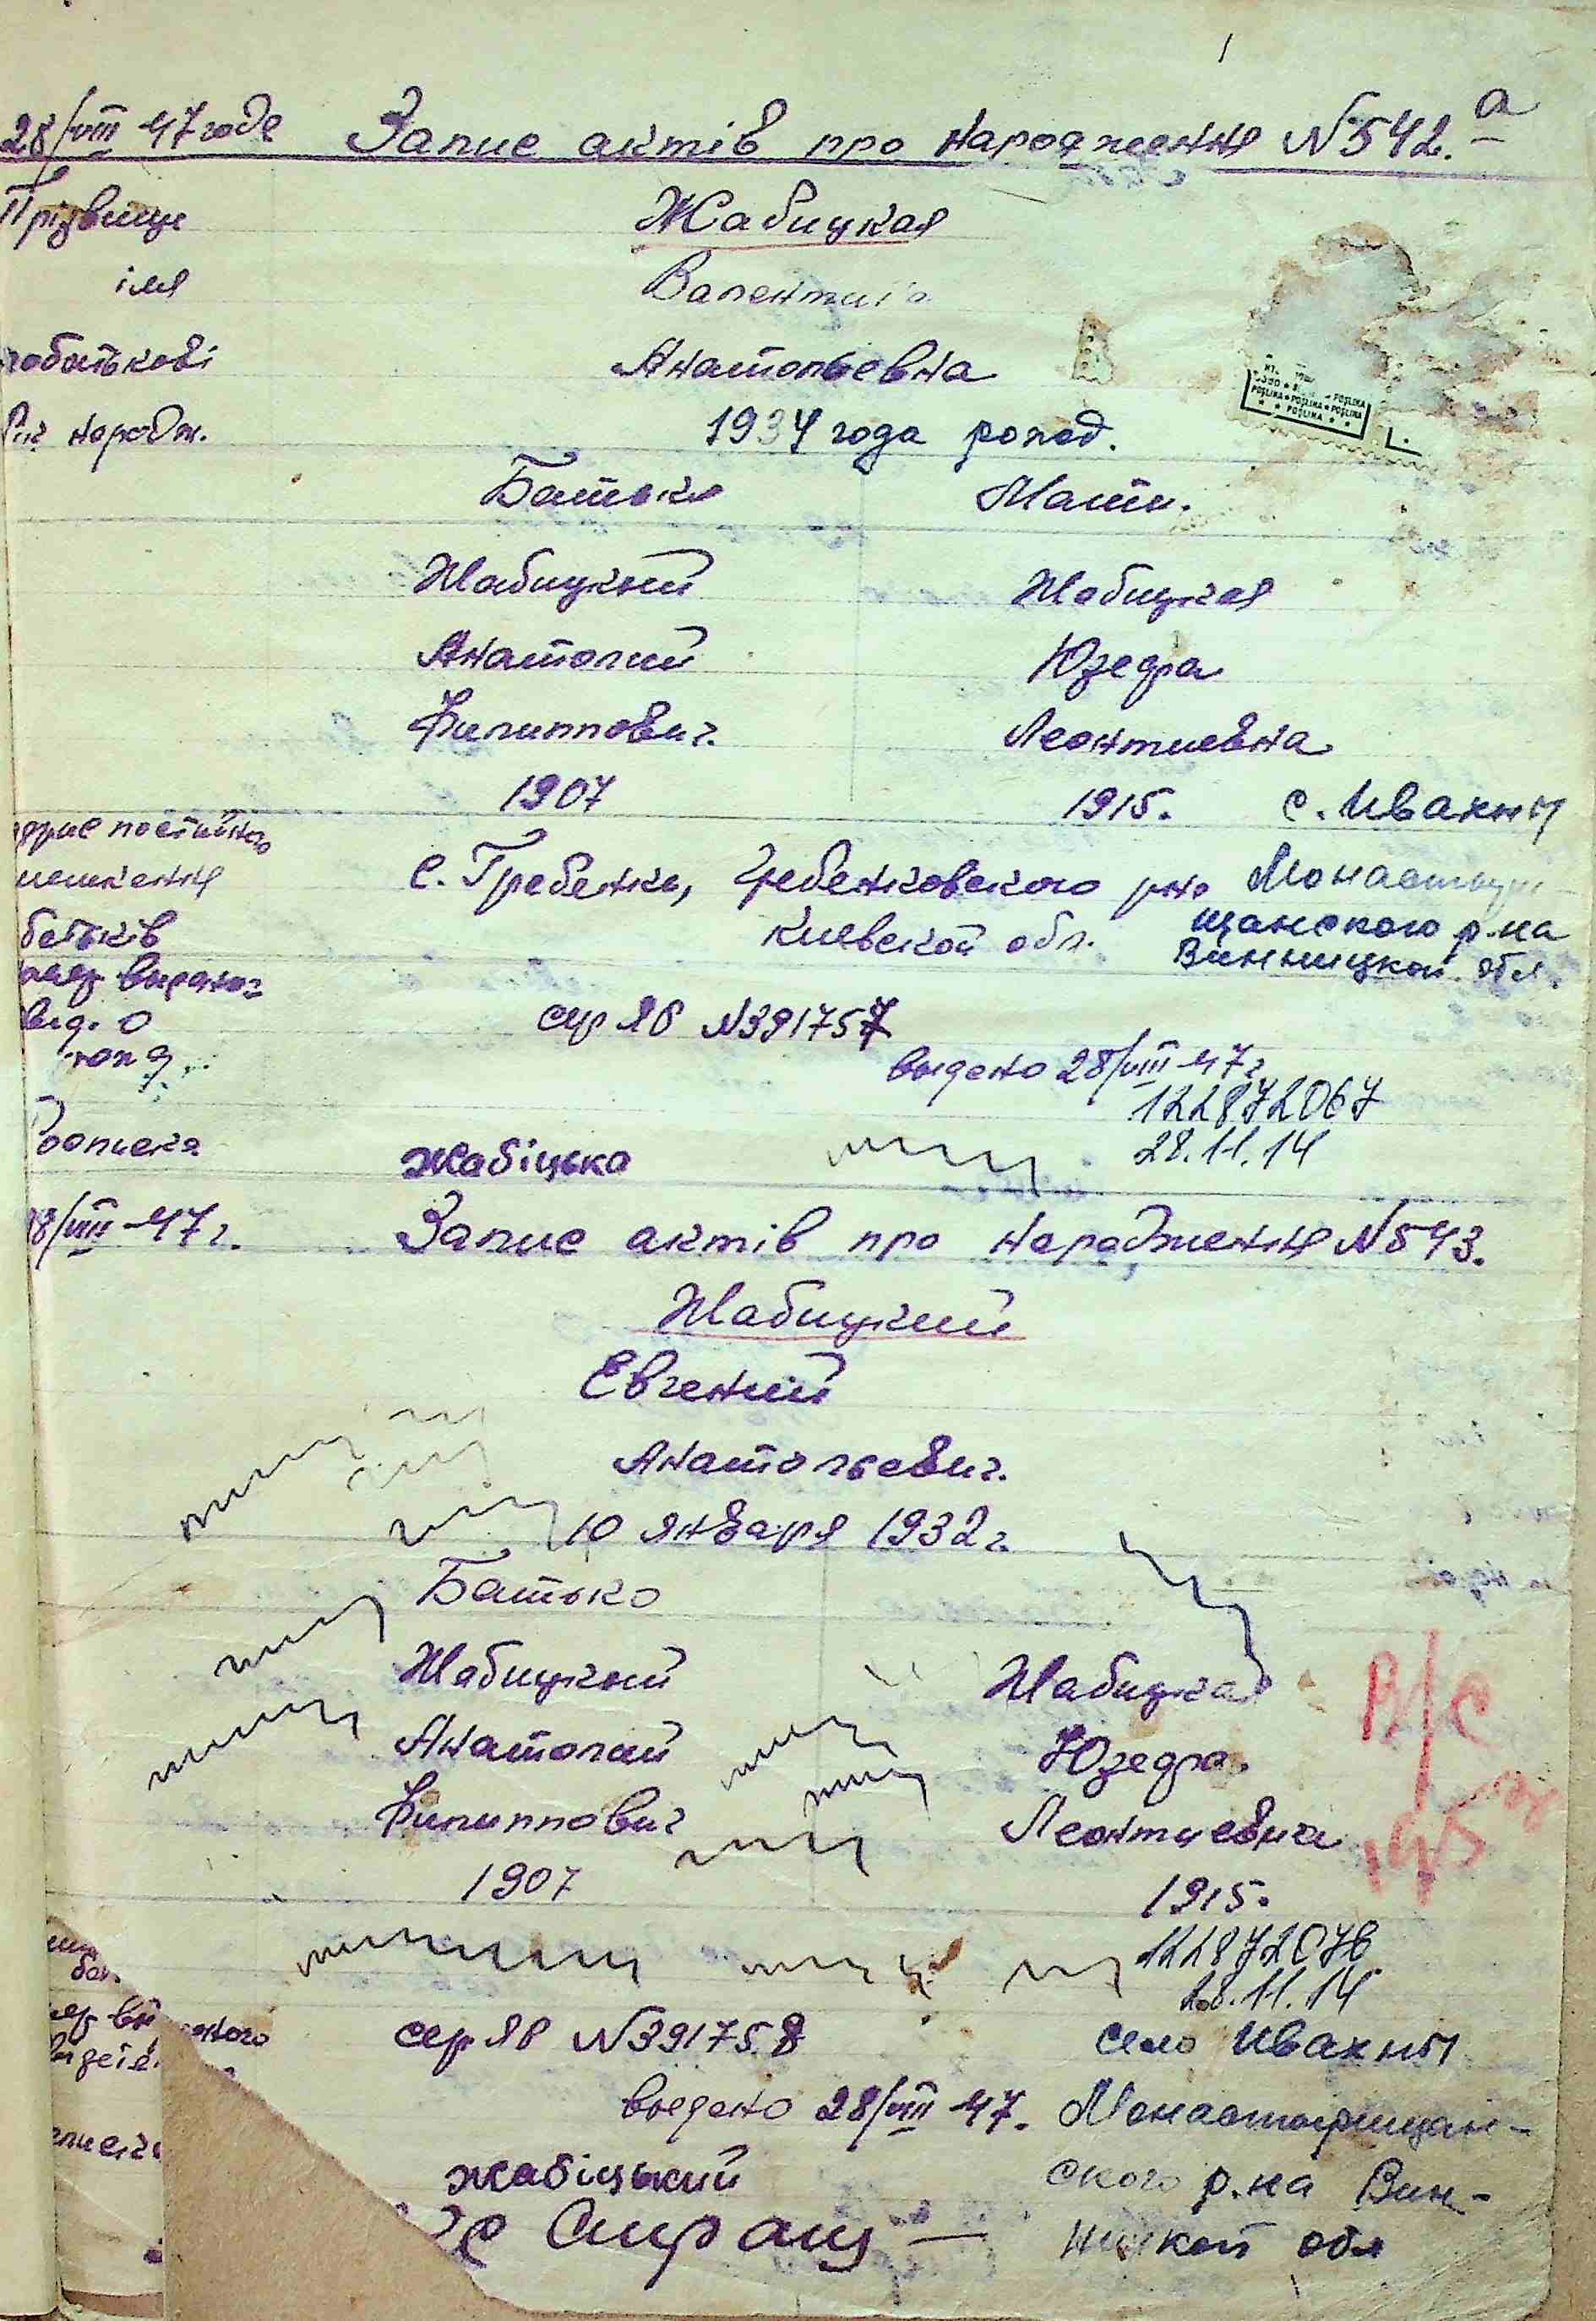 28/VIII 47 годе Запис актів про народження N542.а
Прізвище Жабицкая
імя Валентина
побатькові Анатольевна
Рік народж. 1934 года рожд.
Батько Мати.
Жабицкий Жабицкая
Анатолий Юзефа
Филиппович. Леонтиевна
1907 1915. с. Ивахны
постійного
мешкання С. Гребенки, Гребенковского р-на Монастыри-
батьків Киевской обл. щанского р-на
Винницкой обл.
сер ЯБ N391757
выдано 28/VIII 47 г.
122872067
28.11.14
Жабіцька
28/VIII-47 г. Запис актів про народження N543.
Жабицкий
Евгений
Анатольевич.
10 января 1932 г.
Батько
Жабицкий Жабицкая
Анатолий Юзефа.
Филиппович Леонтиевна
1907 1915.
В/С
195
122872076
28.11.14
сер ЯБ N391758 село Ивахны
выдано 28/VIII 47. Монастырищан-
Жабіцький ского р-на Вин-
ницкой обл
POȘLINA ★ POȘLINA ★ POȘLINA
★ ★ POȘLINA ★ ★